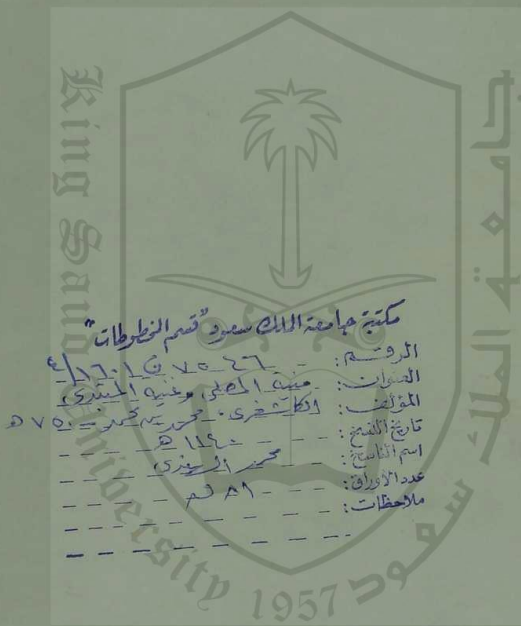 King Saud University 1957
جامعة الملك سعود
مكتبة جامعة الملك سعود "قسم المخطوطات"
الرقم: ٧٥٤٦ ف ١٦٠١/٤
العنوان: منية المصلي وغنية المبتدي
المؤلف: الكاشغري، محمد بن محمد - ٧٥٠ هـ
تاريخ النسخ: ١١٤٠ هـ
اسم الناسخ: محمد
عدد الأوراق: ٨١
ملاحظات: